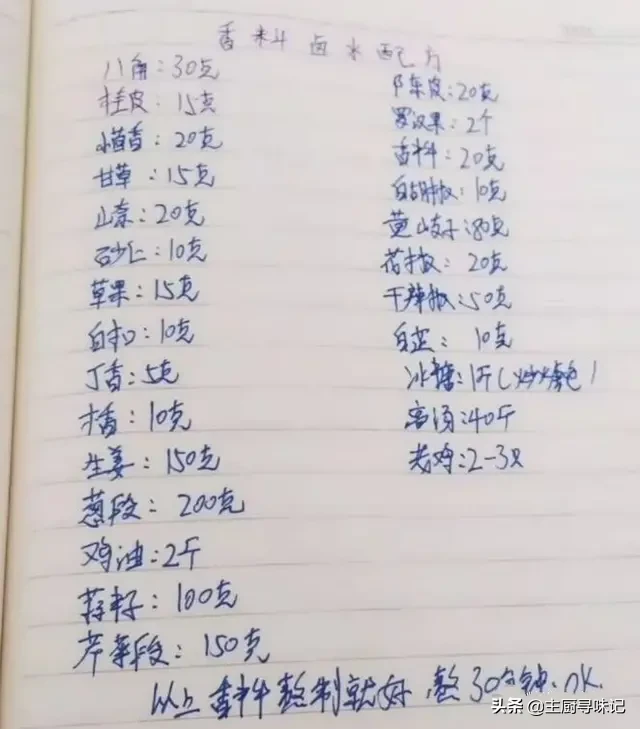 香料卤水配方
八角:30克
桂皮:15克
小茴香:20克
甘草:15克
山奈:20克
砂仁:10克
草果:15克
白扣:10克
丁香:5克
木香:10克
生姜:150克
葱段:200克
鸡油:2斤
蒜籽:100克
芹菜段:150克
陈皮:20克
罗汉果:2个
香料:20克
白胡椒:10克
黄山枝子:80克
花椒:20克
干辣椒:50克
白芷:10克
冰糖:1斤(炒糖色)
高汤:40斤
老鸡:2-3只
以上香料熬制就好,熬30分钟.
头条 @主厨寻味记